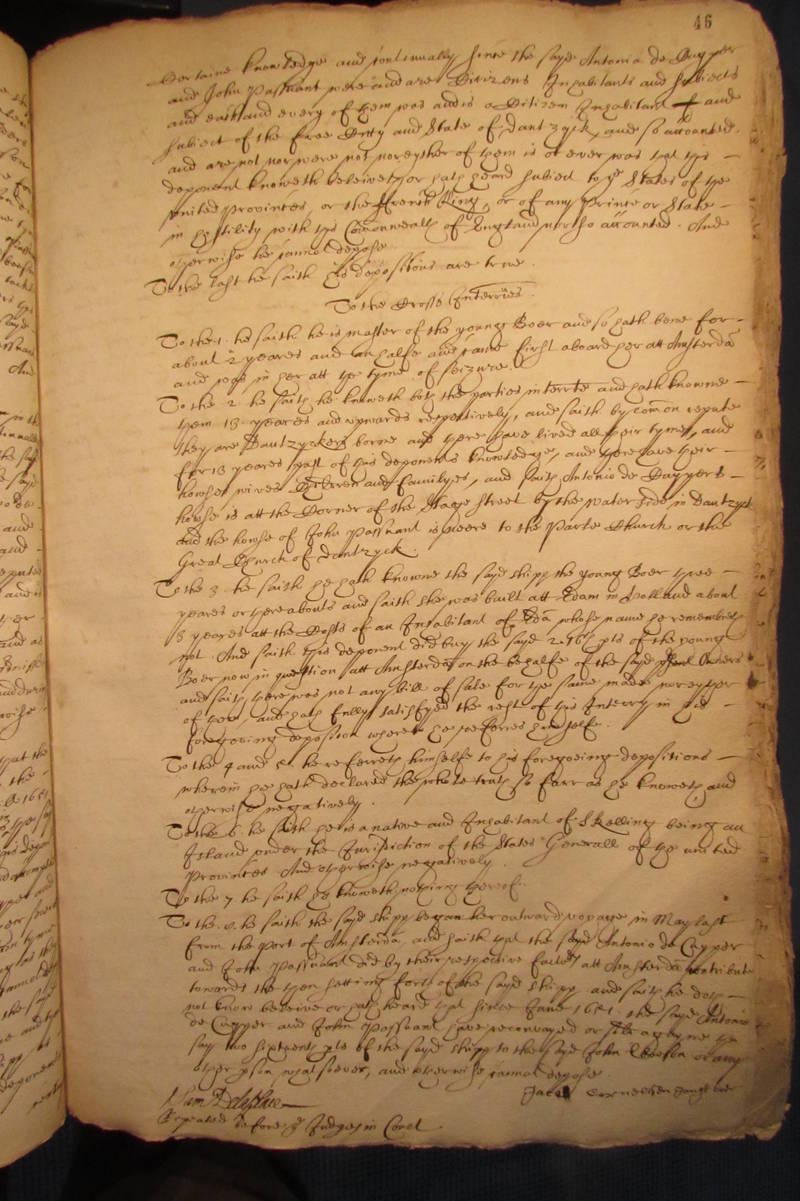 46
Certaine knowledge and continually since the sayd Antonio de Cuyper
and John Passnant were and are Citizens Inhabitants and subiects
and each and every of them was and is a Citizen Inhabitant and
subiect of the free Citty and State of Dantzyck, and so accounted.
and are not nor were not nor eyther of them is or ever was that this
deponent knoweth beleiveth or hath heard subiect to ye States of the
United Provinces, or the French King, or of any Prince or State
in hostility with this Comonwealth of England nor so accounted. And
otherwise he cannot depose
To the last he saith his depositions are true.
To the Crosse Interries.
To the 1. he saith he is master of the young Boer and so hath bene for
about 2 yeares and an halfe and came first aboard her att Amsterda
and was in her att the tyme of seizure.
To the 2. he saith he knoweth both the parties interrte and hath knowne
them 13 yeares and upwards respectively, and saith by comon repute
they are Dantzyckers borne and there have lived all their tymes, and
for 13 yeares past of this deponents knowledge, and there have their
howses wives Children and familyes, and saith Antonio de Cuypers
howse is att the Corner of the street by the water side in Dantzyck
and the howse of John Passnant is neere to the Church or the
Great Church of Dantzyck.
To the 3. he saith he hath knowne the sayd shipp the young Boer three
yeares or thereabouts and saith she was built att Edam in Holland about
3 yeares att the Costs of an Inhabitant of Eda whose name he remembreth
not. And saith this deponent did buy the sayd 2.16th pts of the young
Boer now in question att Amsterda on the behalfe of the sayd Owners
and saith there was not any bill of sale for the same made nor eyther
of them and hath fully satisfyed the rest of this Interry in his
foregoing deposition whereto he referres himselfe.
To the 4 and 5. he referreth himselfe to his foregoeing depositions
wherein he hath declared the whole truth so farr as he knoweth and
otherwise negatively.
To the 6. he saith he is a native and Inhabitant of Skelling being an
Island under the Jurisdiction of the States Generall of the united
Provinces And otherwise negatively.
To the 7 he saith he knoweth nothing thereof.
To the 8. he saith the sayd shipp began her outward voyage in May last
from the Port of Amsterda, and saith that the sayd Antonio de Cuyper
and John Passnant did by their respective factors att Amsterda contribute
towards the then setting forth of the sayd shipp and saith he doth
not know beleive or hath heard that since June 1651. the sayd Antonio
de Cuyper and John Passnant have reconveyed or sold agayne the
sayd two sixteenth pts of the sayd shipp to the sayd John or any
other pson whatsoever, and otherwise cannot depose
Jacob Cornelissen
Repeated before ye Judges in Court.